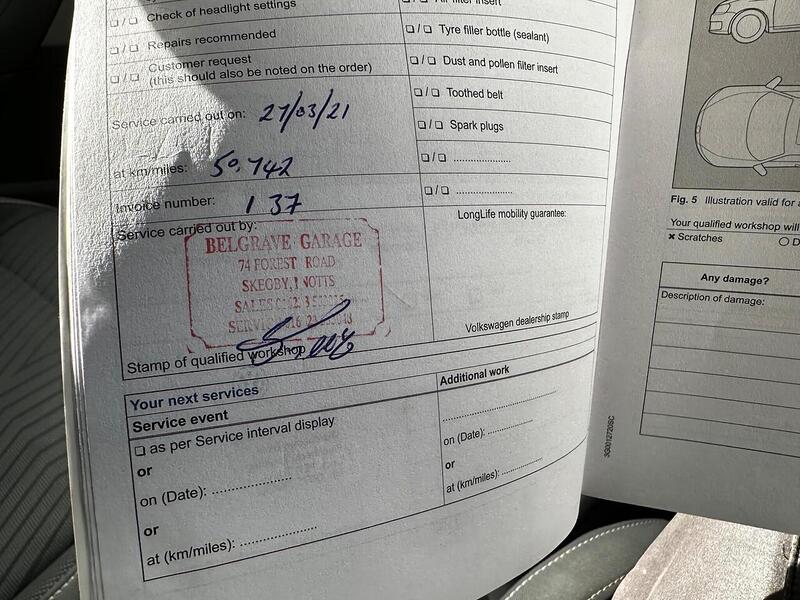 Check of headlight settings
Repairs recommended
Customer request
(this should also be noted on the order)
Service carried out on: 27/03/21
at km/miles: 50,742
Invoice number: 1 37
Service carried out by:
BELGRAVE GARAGE
74 FOREST ROAD
SKEGBY, NOTTS
SALES
Stamp of qualified workshop
Air filter insert
Tyre filler bottle (sealant)
Dust and pollen filter insert
Toothed belt
Spark plugs
LongLife mobility guarantee:
Volkswagen dealership stamp
Your next services
Service event
as per Service interval display
or
on (Date): ....................
or
at (km/miles): ....................
Additional work
on (Date): ............
or
at (km/miles): ............
3G0012720SC
Fig. 5 Illustration valid for
Your qualified workshop will
Scratches
Any damage?
Description of damage: